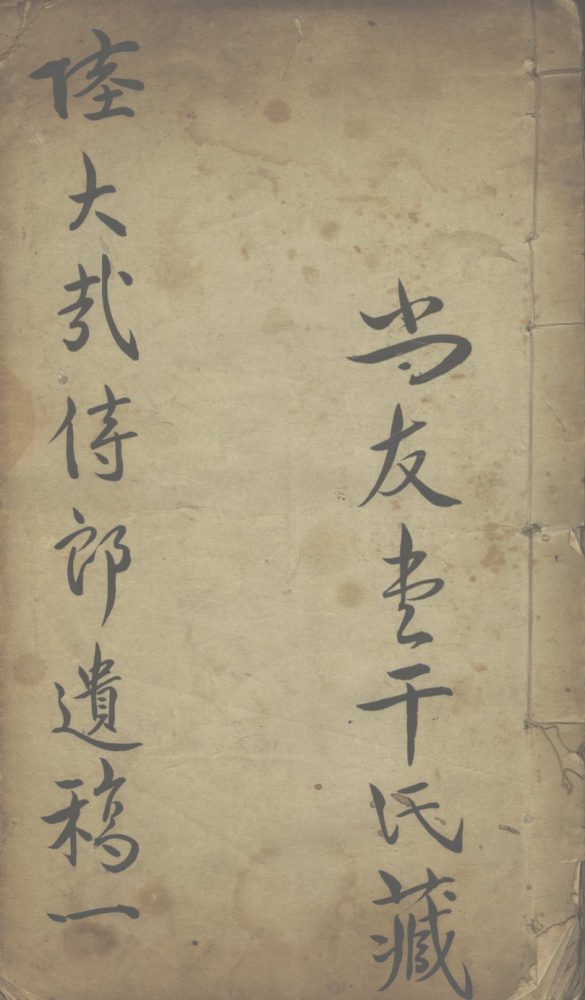 尚友堂干氏藏
陸大侍郎遺稿一